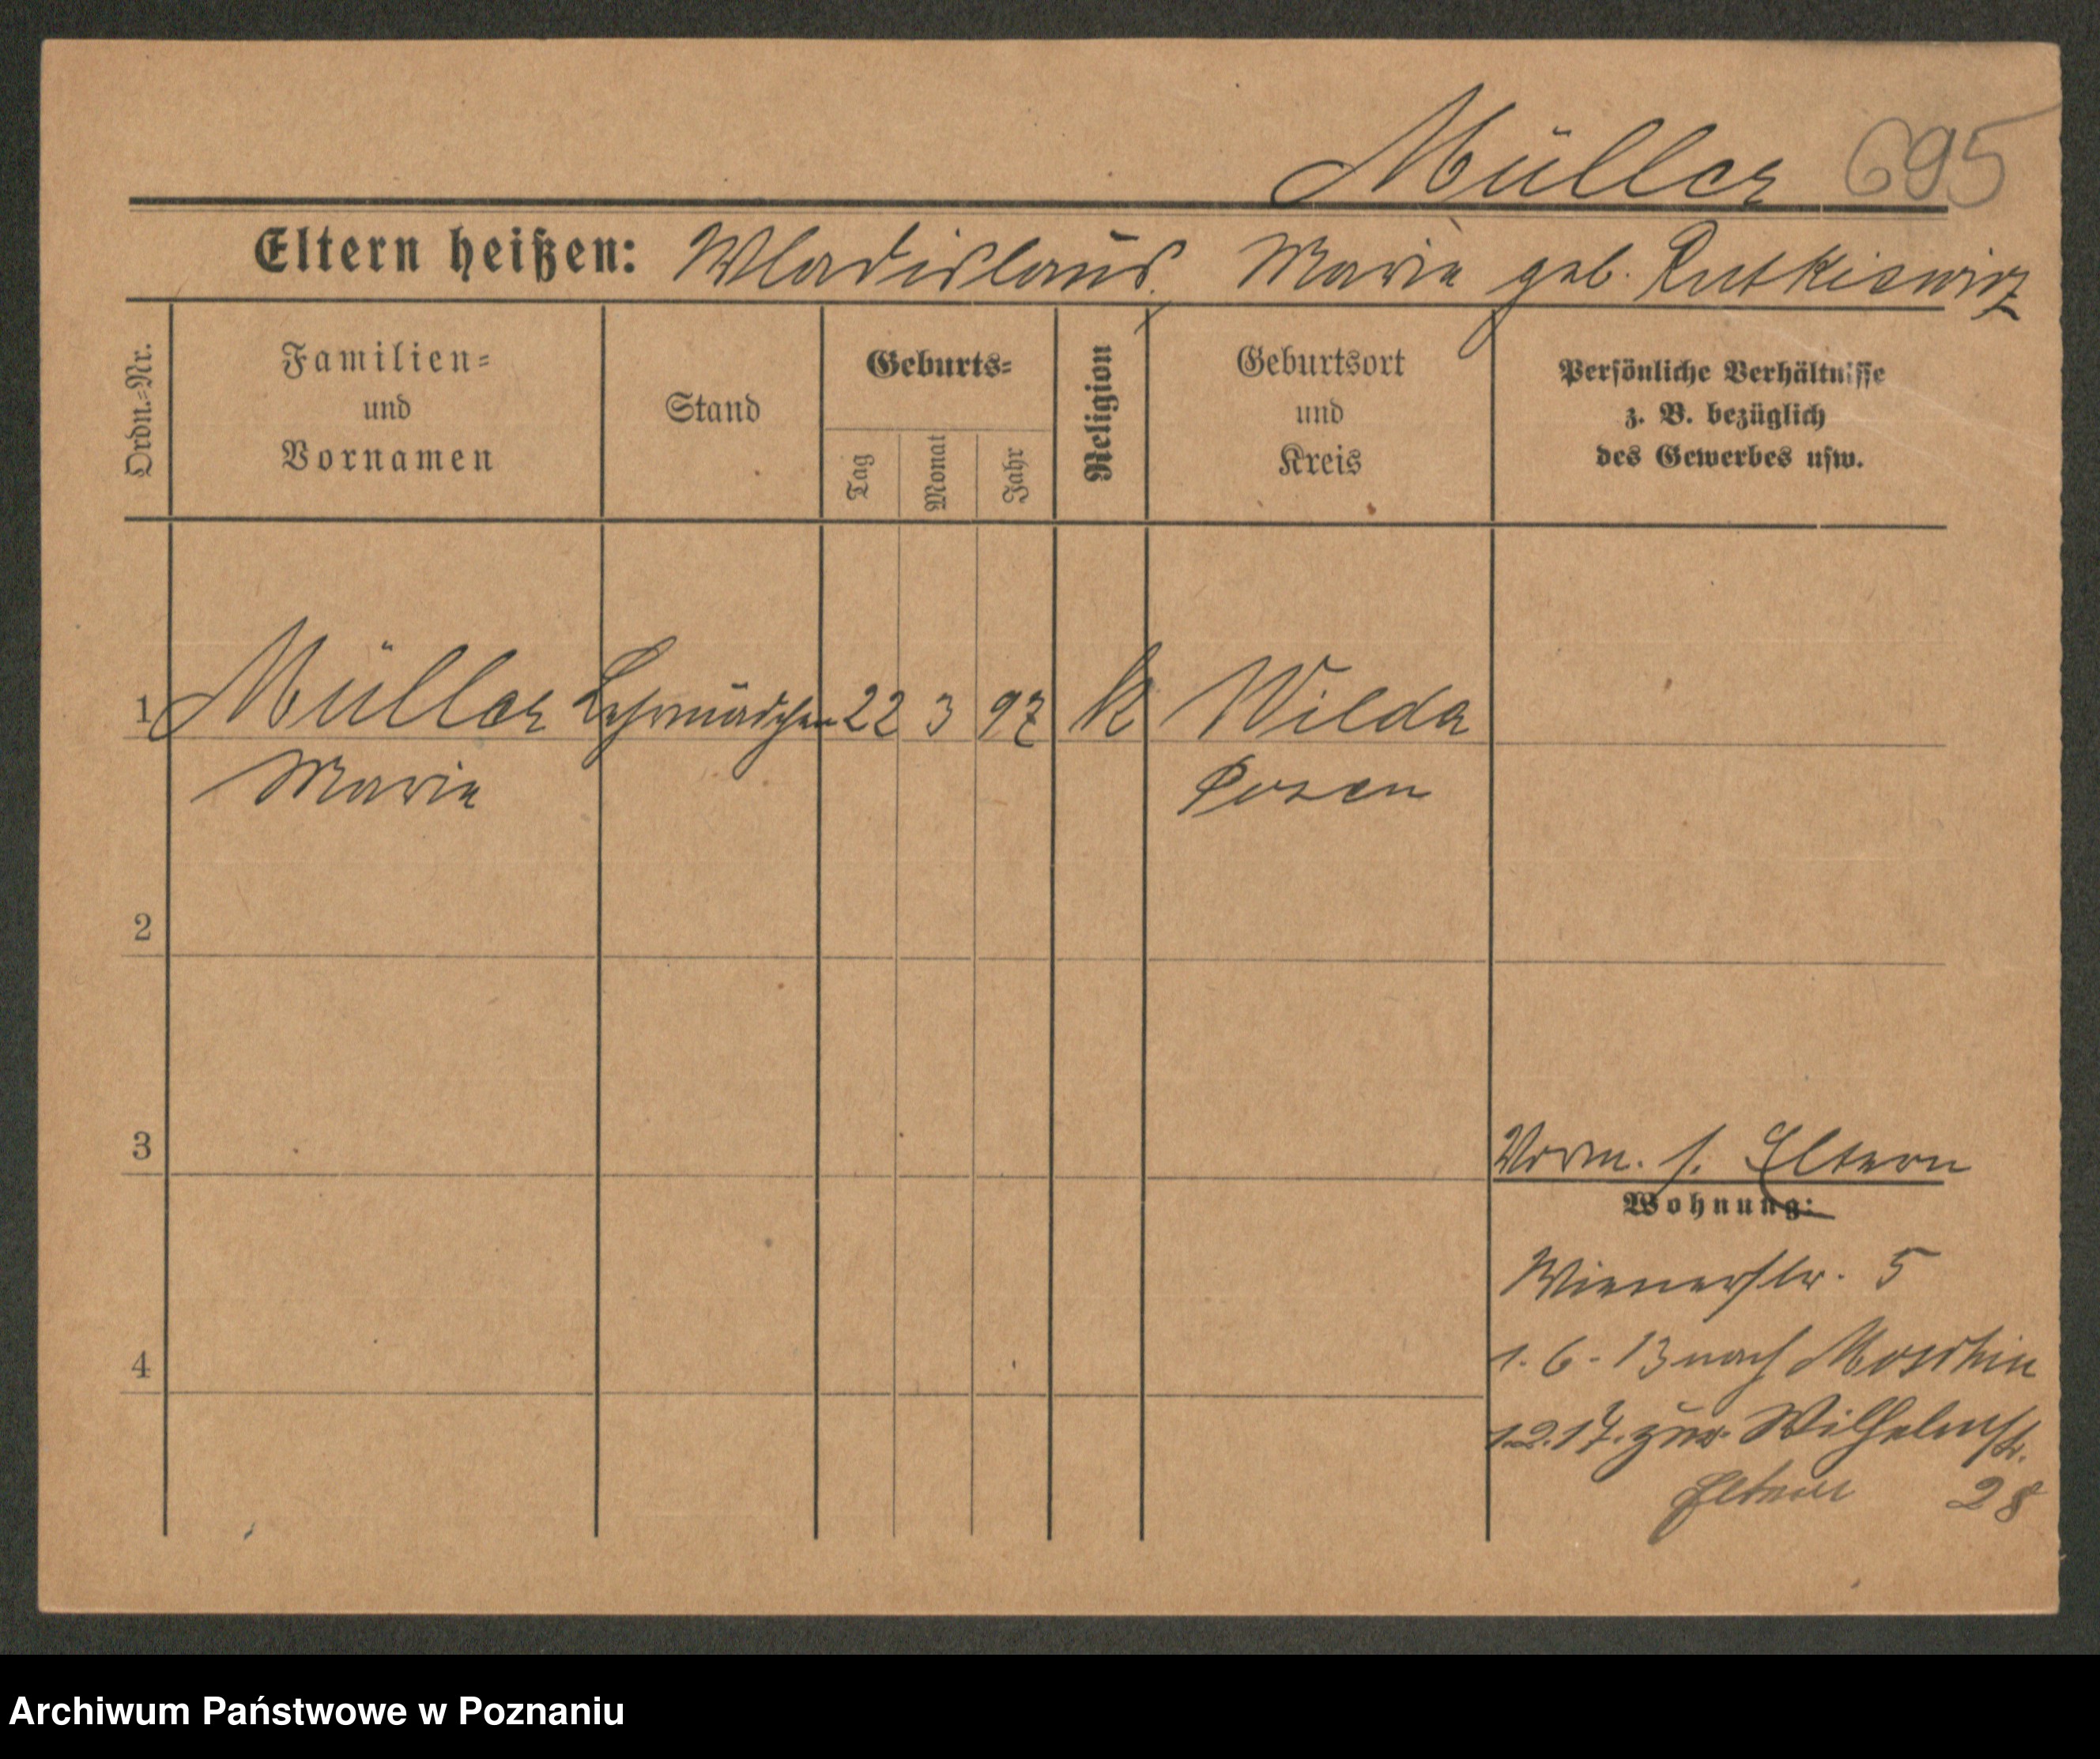 Müller 695
Eltern heißen: Wladislaus, Marie geb. Rutkiewicz
Ordn.-Nr.
Familien-
und
Vornamen
Stand
Geburts-
Tag
Monat
Jahr
Religion
Geburtsort
und
Kreis
Persönliche Verhältnisse
z. B. bezüglich
des Gewerbes usw.
1 Müller Lehrmädchen 22 3 97 k Wilda
Marie Posen
2
3
Vorm. s. Eltern
Wohnung:
Wienerstr. 5
4
1.6.13 nach Moschin
1.2.17. zur. Wilhelmstr.
Eltern 28
Archiwum Państwowe w Poznaniu